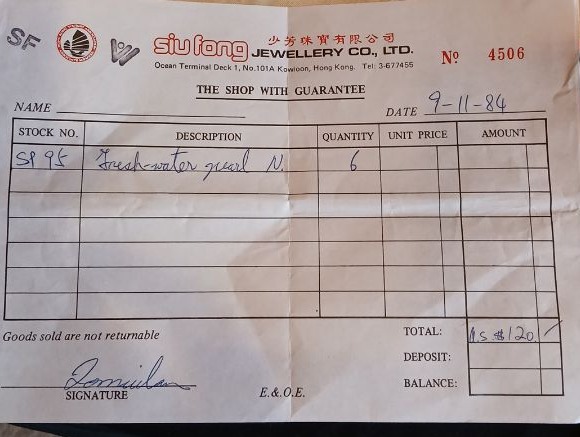 SF
siu fong 少芳珠寶有限公司
JEWELLERY CO., LTD.
Ocean Terminal Deck 1, No.101A Kowloon, Hong Kong. Tel: 3-677455
No 4506
THE SHOP WITH GUARANTEE
NAME
DATE 9-11-84
STOCK NO. DESCRIPTION QUANTITY UNIT PRICE AMOUNT
SP 95 Fresh-water pearl N. 6
Goods sold are not returnable
TOTAL: U.S.$120
DEPOSIT:
BALANCE:
SIGNATURE
E.&.O.E.